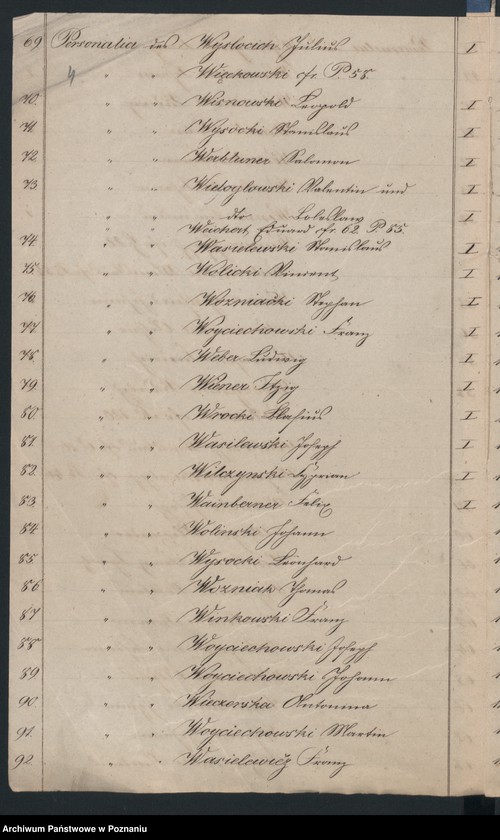 69 Personalia des Wyslocich Julius I
" " Wieckowski cfr. P. 55.
70. " " Wisnowski Leopold I
71 " " Wysocki Stanislaus I
72 " " Salomon I
73 " " Valentin und I
" " dto Boleslaw I
Eduard cfr. 62. P. 55.
74 " " Wasielewski Stanislaus I
75 " " Wolicki Vincent I
76 " " Wozniacki Stephan I
77 " " Woyciechowski Franz I
78 " " Weber Ludwig I
79 " " Wiener Itzig I
80 " " Wrocki Blasius I
81 " " Wasilewski Joseph I
82 " " Wilczynski Cyprian I
83 " " Wainberner Felix I
84 " " Wolinski Johann
85. " " Wysocki Leonhard
86 " " Wozniak Thomas
87 " " Winkowski Franz
88 " " Woyciechowski Joseph
89 " " Woyciechowski Johann
90 " " Antonina
91. " " Woyciechowski Martin
92 " " Wasielewicz Franz
Archiwum Państwowe w Poznaniu